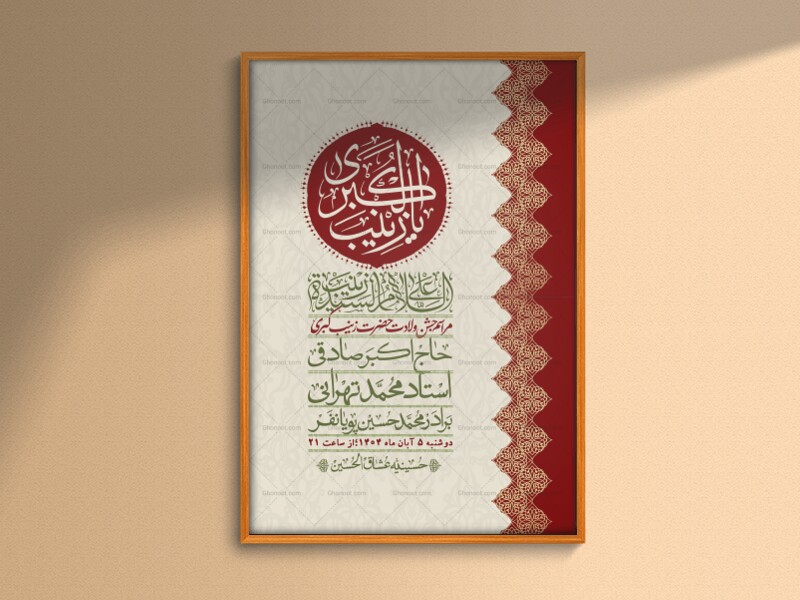 یا زینب الکبری
السلام علی السیدة زینب
مراسم جشن ولادت حضرت زینب کبری
حاج اکبر صادقی
استاد محمد تهرانی
برادر محمد حسین پویانفر
دوشنبه ۵ آبان ماه ۱۴۰۴؛از ساعت ۲۱
حسینیه عشاق الحسین